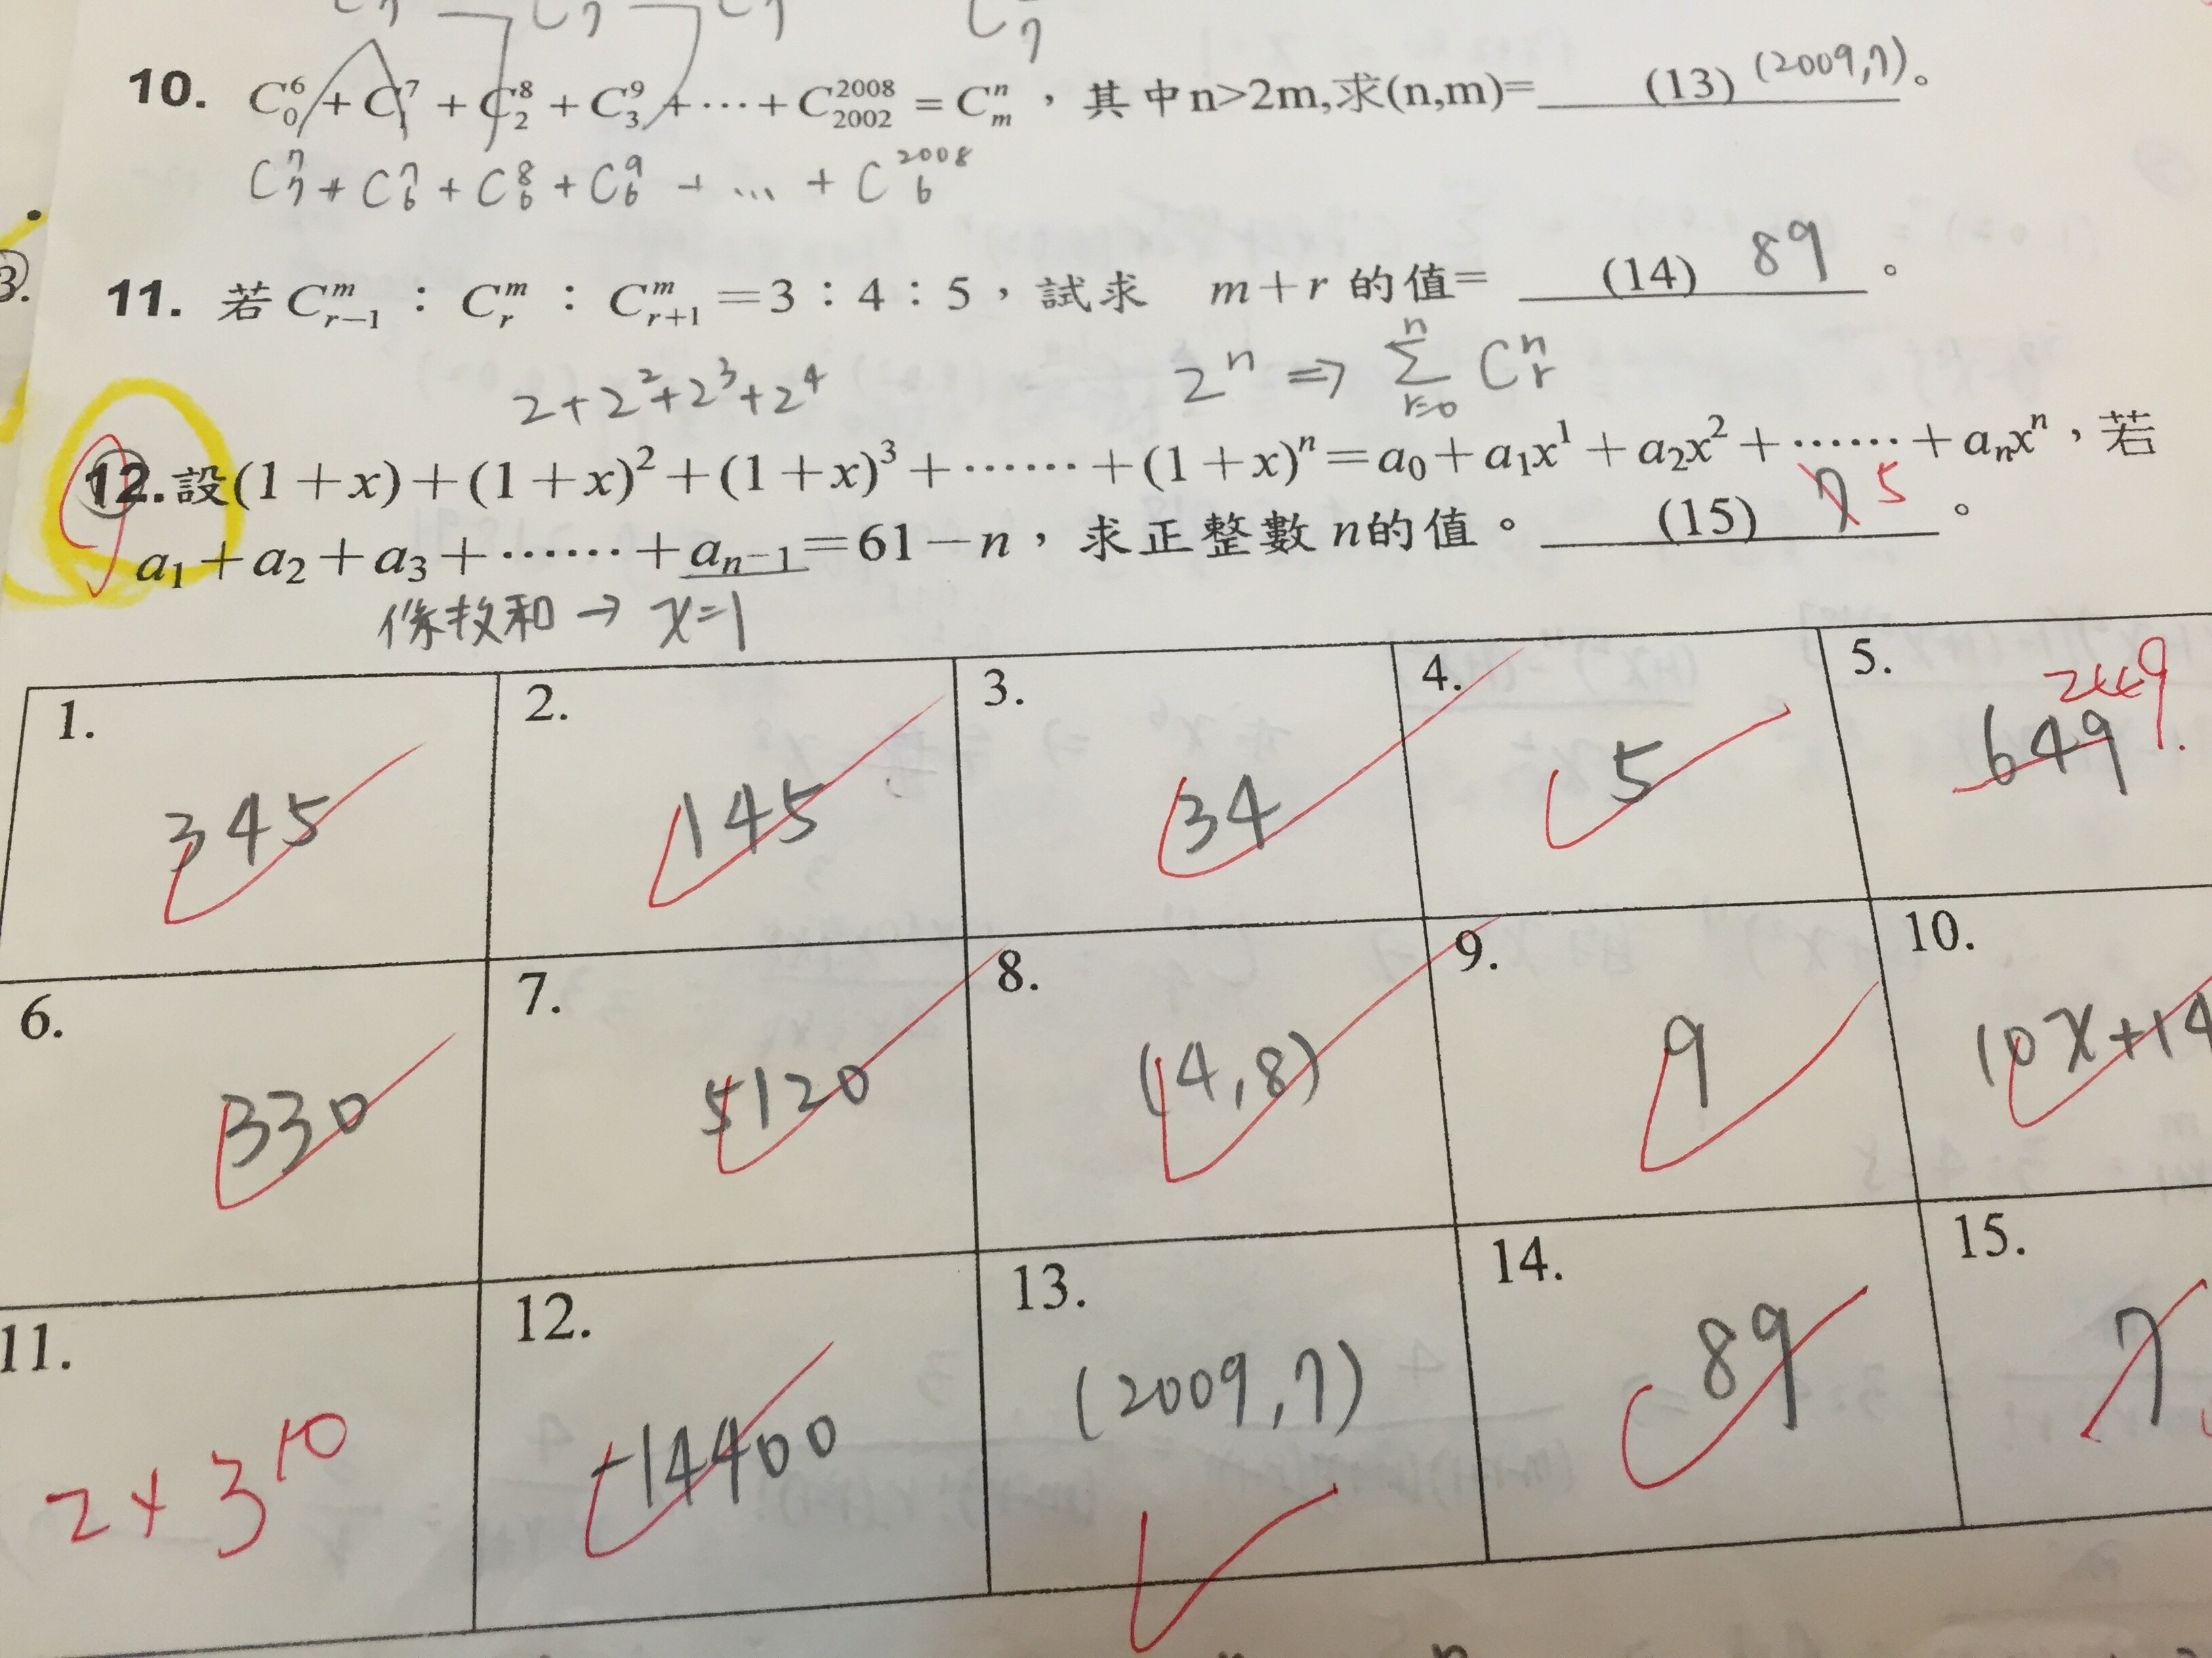 10. C₀⁶ + C₁⁷ + C₂⁸ + C₃⁹ + ⋯ + C₂₀₀₂²⁰⁰⁸ = Cₘⁿ，其中n>2m,求(n,m)= (13) (2009,7)。
C₇⁷ + C₆⁷ + C₆⁸ + C₆⁹ + … + C₆²⁰⁰⁸
11. 若 Cᵣ₋₁ᵐ : Cᵣᵐ : Cᵣ₊₁ᵐ = 3 : 4 : 5，試求 m+r 的值= (14) 89 。
2+2²+2³+2⁴ 2ⁿ ⇒ Σ r=0 n Cᵣⁿ
12. 設(1+x)+(1+x)²+(1+x)³+⋯⋯+(1+x)ⁿ=a₀+a₁x¹+a₂x²+⋯⋯+aₙxⁿ，若
a₁+a₂+a₃+⋯⋯+aₙ₋₁=61−n，求正整數n的值。 (15) 7 5 。
係數和 → x=1
1. 2. 3. 4. 5.
345 145 34 5 649
6. 7. 8. 9. 10.
330 5120 (4,8) 9 10x+14
11. 12. 13. 14. 15.
2×3¹⁰ -14400 (2009,7) 89 7